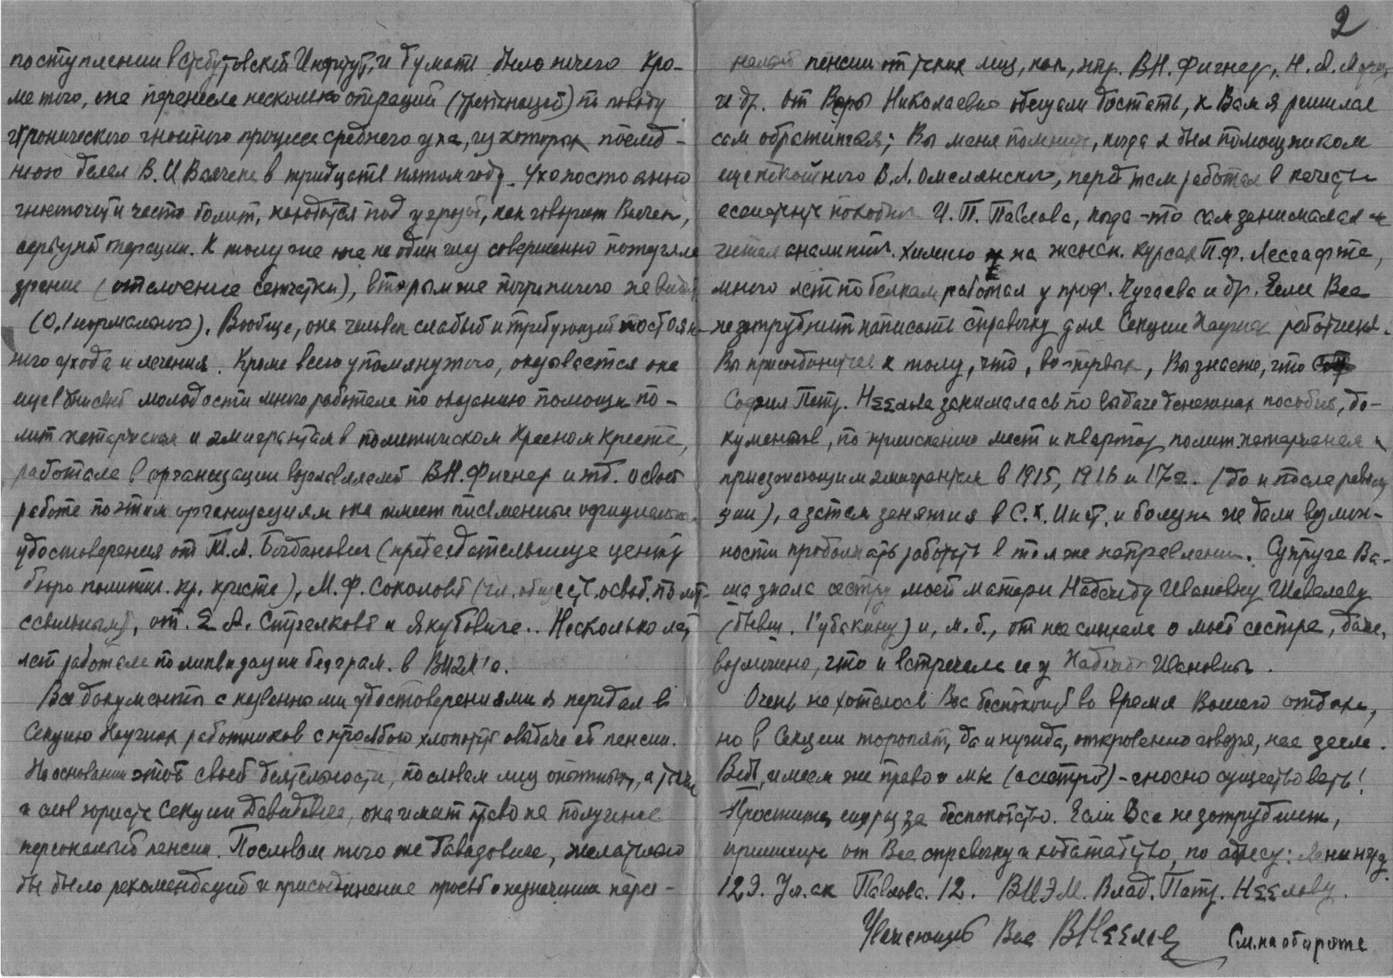 поступлении в Стебутовский Институт, и думать было нечего Кро-
ме того, она перенесла несколько операций (трепанаций) по поводу
хронического гнойного процесса среднего уха, из которых послед-
нюю делал В. И Воячек в тридцать пятом году. Ухо постоянно
гноточит и часто болит, находится под угрозой, как говорит Воячек,
серьузной операции. К тому же она не один глаз совершенно потеряла
зрение (отслоение сетчатки), вторым же почти ничего не видит
(0,1 нормального). Вообще, она человек слабый и требующий постоян-
ного ухода и лечения. Кроме всего упомянутого, оказывается она
еще в бытность молодости много работала по оказанию помощи по-
лит каторжанам и эмигрантам в политическом Красном Кресте,
работала в организации возглавляемой В.Н. Фигнер и тд. о своей
работе по этим организациям она имеет письменные официальн.
удостоверения от Т. А. Богданович (председательницы центр
бюро политич. кр. креста), М. Ф. Соколовой (чл. общест. освоб. полит-
ссыльным), от. Е А. Стрелковой и Якубовича.. Несколько лет
лет работала по ликвидации безграм. в ВИЭМ'е.
Все документы с казенными удостоверениями я передал в
Секцию Научных работников с просьбою хлопотать о выдаче ей пенсии.
На основании этой своей деятельности, по словам лиц опытных, а также
и слов юриста Секции Давидовича, она имеет право на получение
персональной пенсии. По словам того же Давидовича, желательно
бы было рекомендаций и присоединение просьб о назначении персо-
2
нальной пенсии от таких лиц, как, нпр. В.Н. Фигнер, Н. А. Мороз
и др. от Веры Николаевны обещали достать, к Вам я решился
сам обратиться; Вы меня помните, когда я был помощником
еще покойного В.Л. Омелянского, перед тем работал в качестве
ассистента покойн. И. П. Павлова, когда-то сам занимался и
читал аналитич. химию на женск. курсах П.Ф. Лесгафта,
много лет по белкам работал у проф. Чугаева и др. Если Вас
не затруднит написать справочку для Секции Научных работников.
Вы присоединитесь к тому, что, во-первых, Вы знаете, что
София Петр. Нееелова занималась по выдаче денежных пособий, до-
кументов, по приисканию мест и квартир, полит.каторжанам и
приезжающим эмигрантам в 1915, 1916 и 17 г. (до и после револю
ции), а затем занятия в С.Х. Инст. и болезнь не дали возмож-
ности продолжать работу в том же направлении. Супруга Ва-
ша знала сестру моей матери Надежду Ивановну Шевалеву
(бывш. Губскину) и, м.б., от нее слыхала о моей сестре, даже,
возможно, что и встречала ее у Надежды Ивановны.
Очень не хотелось Вас беспокоить во время Вашего отдыха,
но в Секции торопят, да и нужда, откровенно говоря, нас заела.
Ведь, имеем же право и мы (с сестрой) - сносно существовать!
Простите, еще раз за беспокойство. Если Вас не затруднит,
пришлите от Вас справочку и ходатайство, по адресу: Ленинград.
123. Ул. ак Павлова. 12. ВИЭМ. Влад. Петр. Нееелову.
Уважающий Вас ВНееелов
См. на обороте